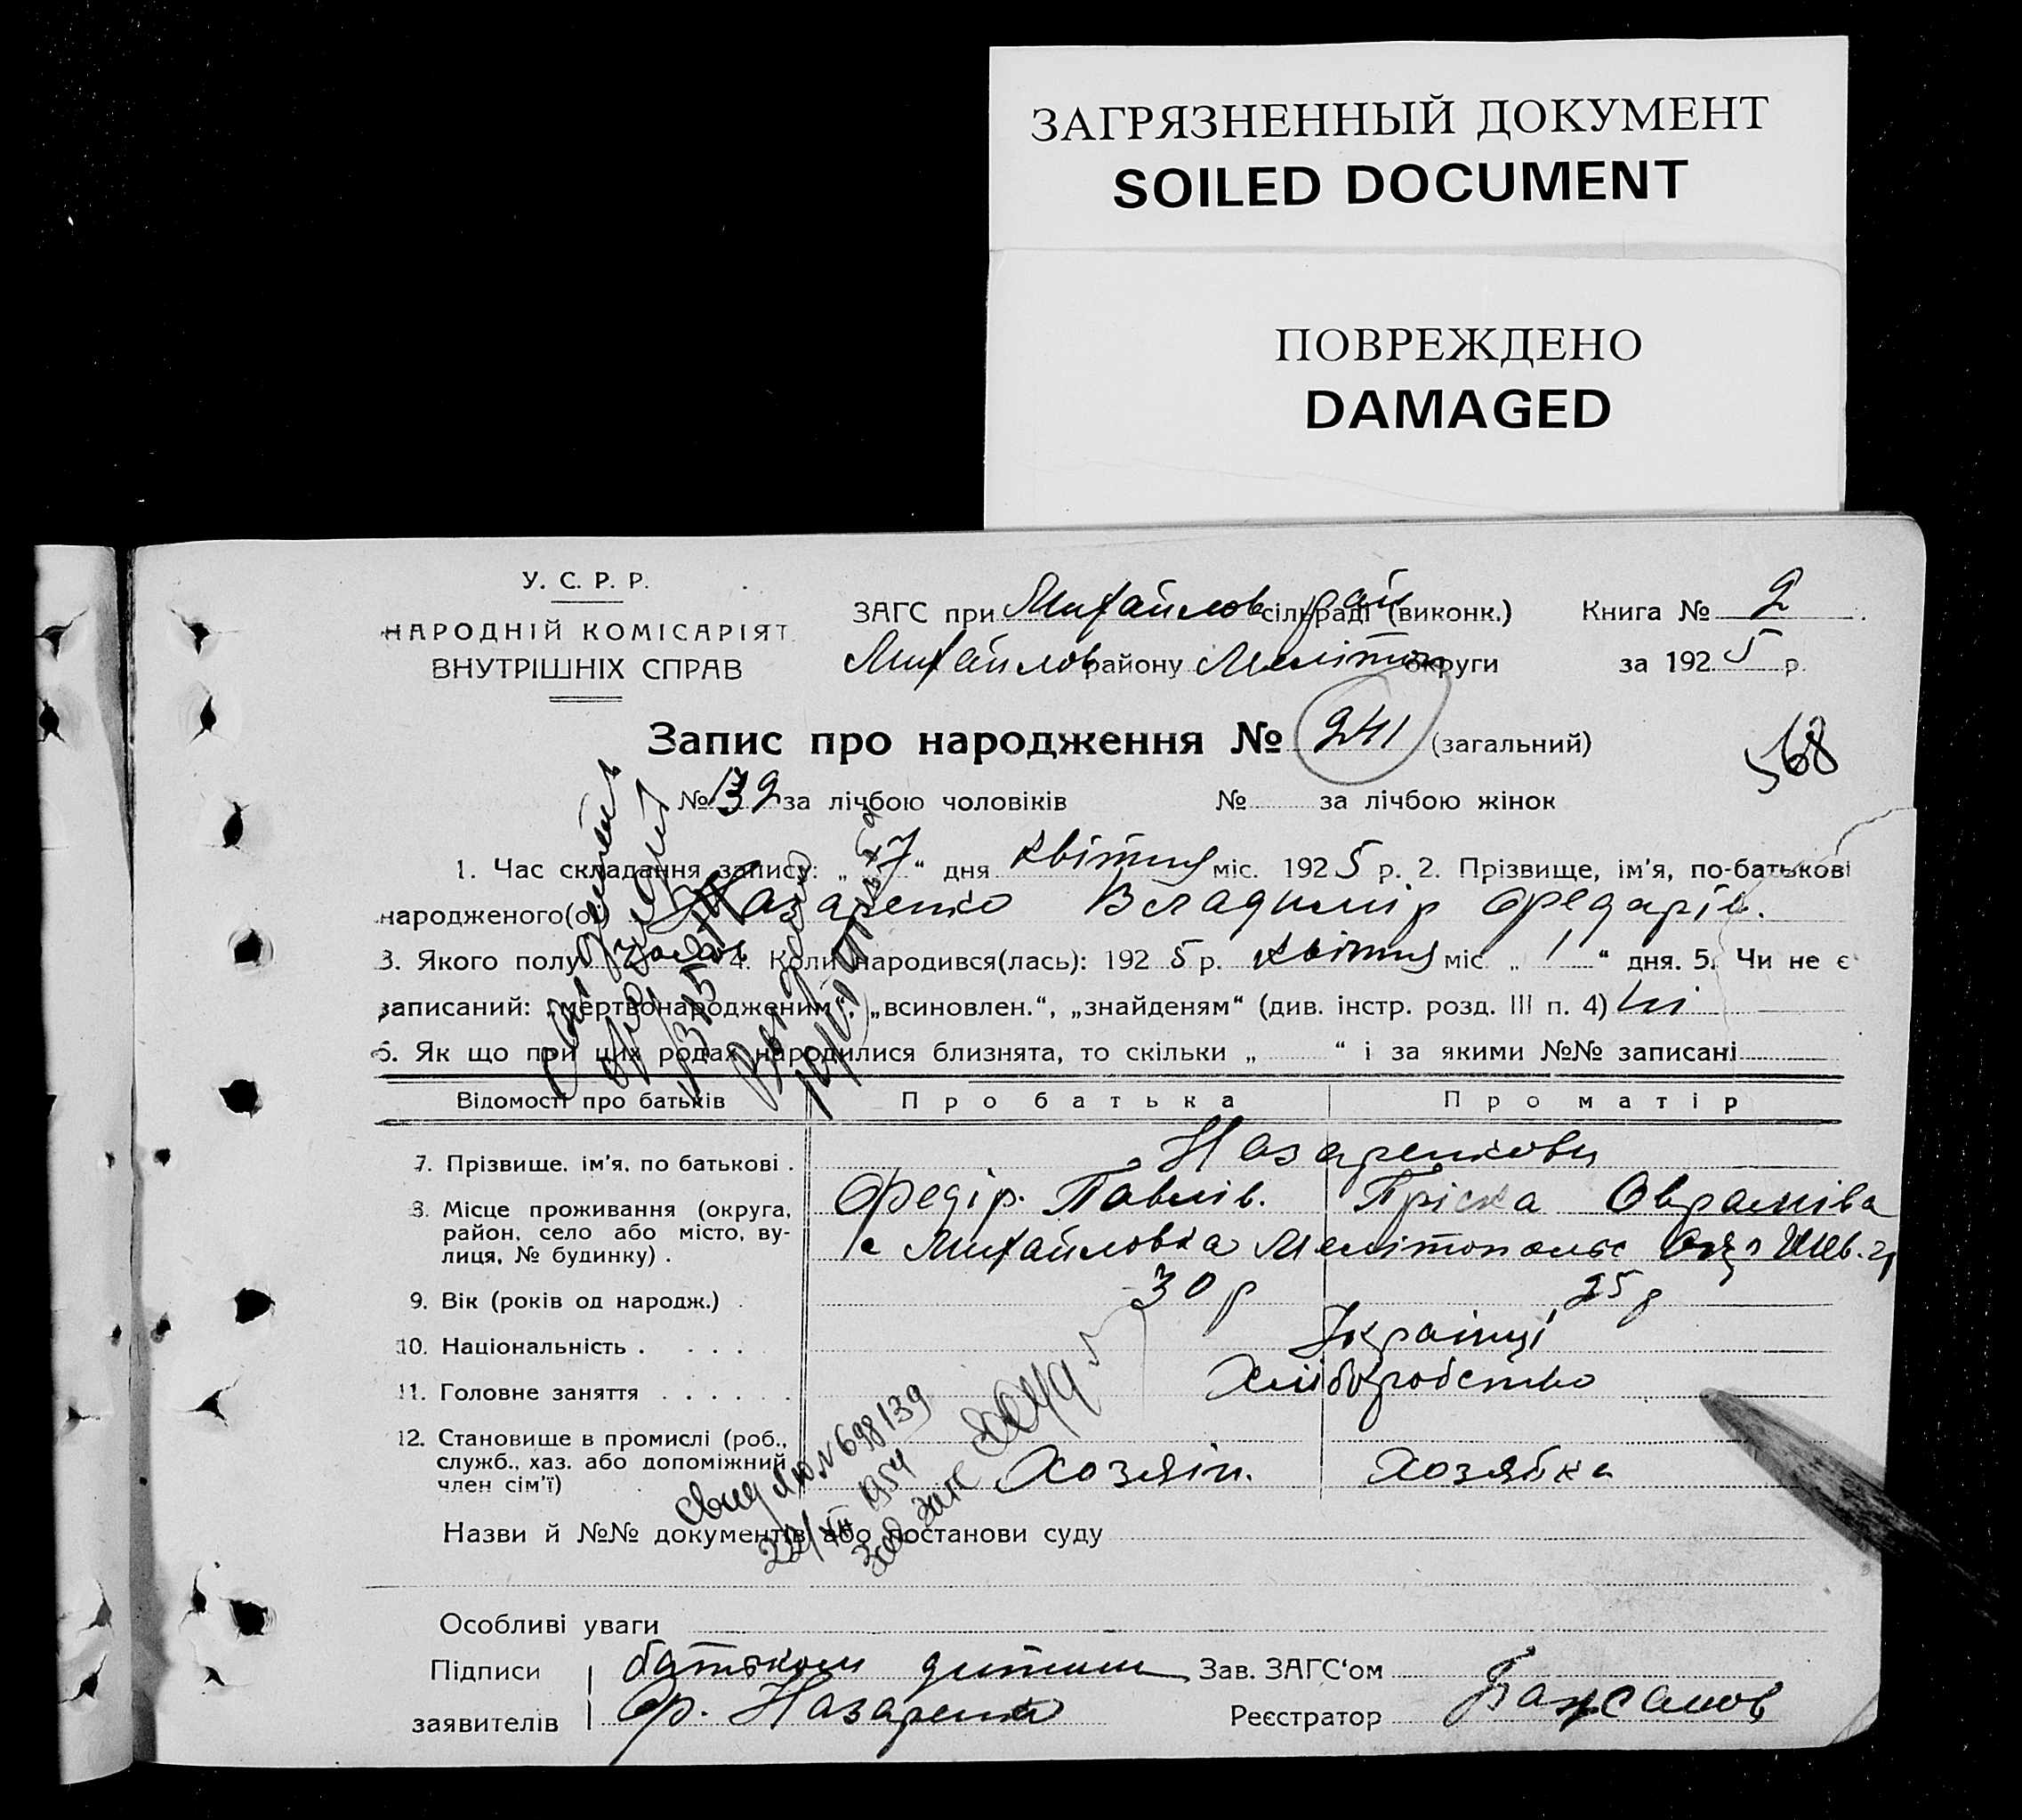 ЗАГРЯЗНЕННЫЙ ДОКУМЕНТ
SOILED DOCUMENT
ПОВРЕЖДЕНО
DAMAGED
У. С. Р. Р.
НАРОДНІЙ КОМІСАРІЯТ
ВНУТРІШНІХ СПРАВ
ЗАГС при Михайлов рай сільраді (виконк.) Книга № 2
Михайлов району Меліт округи за 1925 р.
Запис про народження № 241 (загальний)
568
№ 132 за лічбою чоловіків № за лічбою жінок
1. Час складання запису: „ 7 “ дня квітня міс. 1925 р. 2. Прізвище, ім'я, по-батькові
народженого(ої) Назаренко Владимір Федарів.
3. Якого полу 4. Коли народився(лась): 1925 р. квітня міс. „ 1 “ дня. 5. Чи не є
записаний: „мертвонародженим“, „всиновлен.“, „знайденям“ (див. інстр. розд. III п. 4) Ні
6. Як що при цих родах народилися близнята, то скільки „ “ і за якими №№ записані
Відомості про батьків Про батька Про матір
7. Прізвище, ім'я, по батькові . Назаренкови
Федір. Павлів. Пріска Оврамівa
8. Місце проживання (округа,
район, село або місто, ву-
лиця, № будинку) . с Михайловка Мелітопольс
9. Вік (років од народж.) . 30 р 25 р
10. Національність . . . . Українці
11. Головне заняття . . . . . . Хліборобство
12. Становище в промислі (роб.,
служб., хаз. або допоміжний
член сім'ї) Хозяін. Хозяйка
свид № 698139
22/XII 1954
Назви й №№ документів або постанови суду
Особливі уваги
Підписи батьком дитини Зав. ЗАГС'ом
заявителів Ф. Назаренко Реєстратор